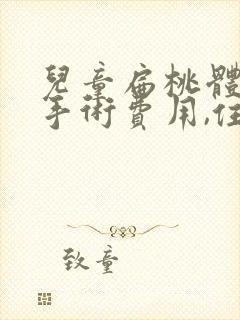 兒童扁桃體
手術費用,住
致童